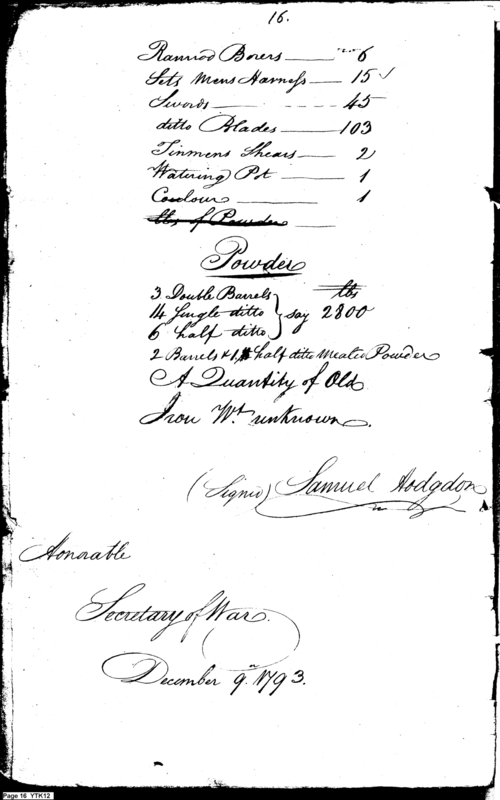 16.
Ramrod Borers 6
Sets Mens Harness 15
Swords 45
ditto Blades 103
Tinmens Shears 2
Watering Pot 1
1
lbs of Powder
Powder
3 Double Barrels lbs
14 Single ditto } say 2800
6 half ditto
2 Barrels & 1 half ditto Mealed Powder
A Quantity of Old
Iron Wt. unknown.
(Signed) Samuel Hodgdon
Honorable
Secretary of War.
December 9th 1793.
Page 16 YTK12